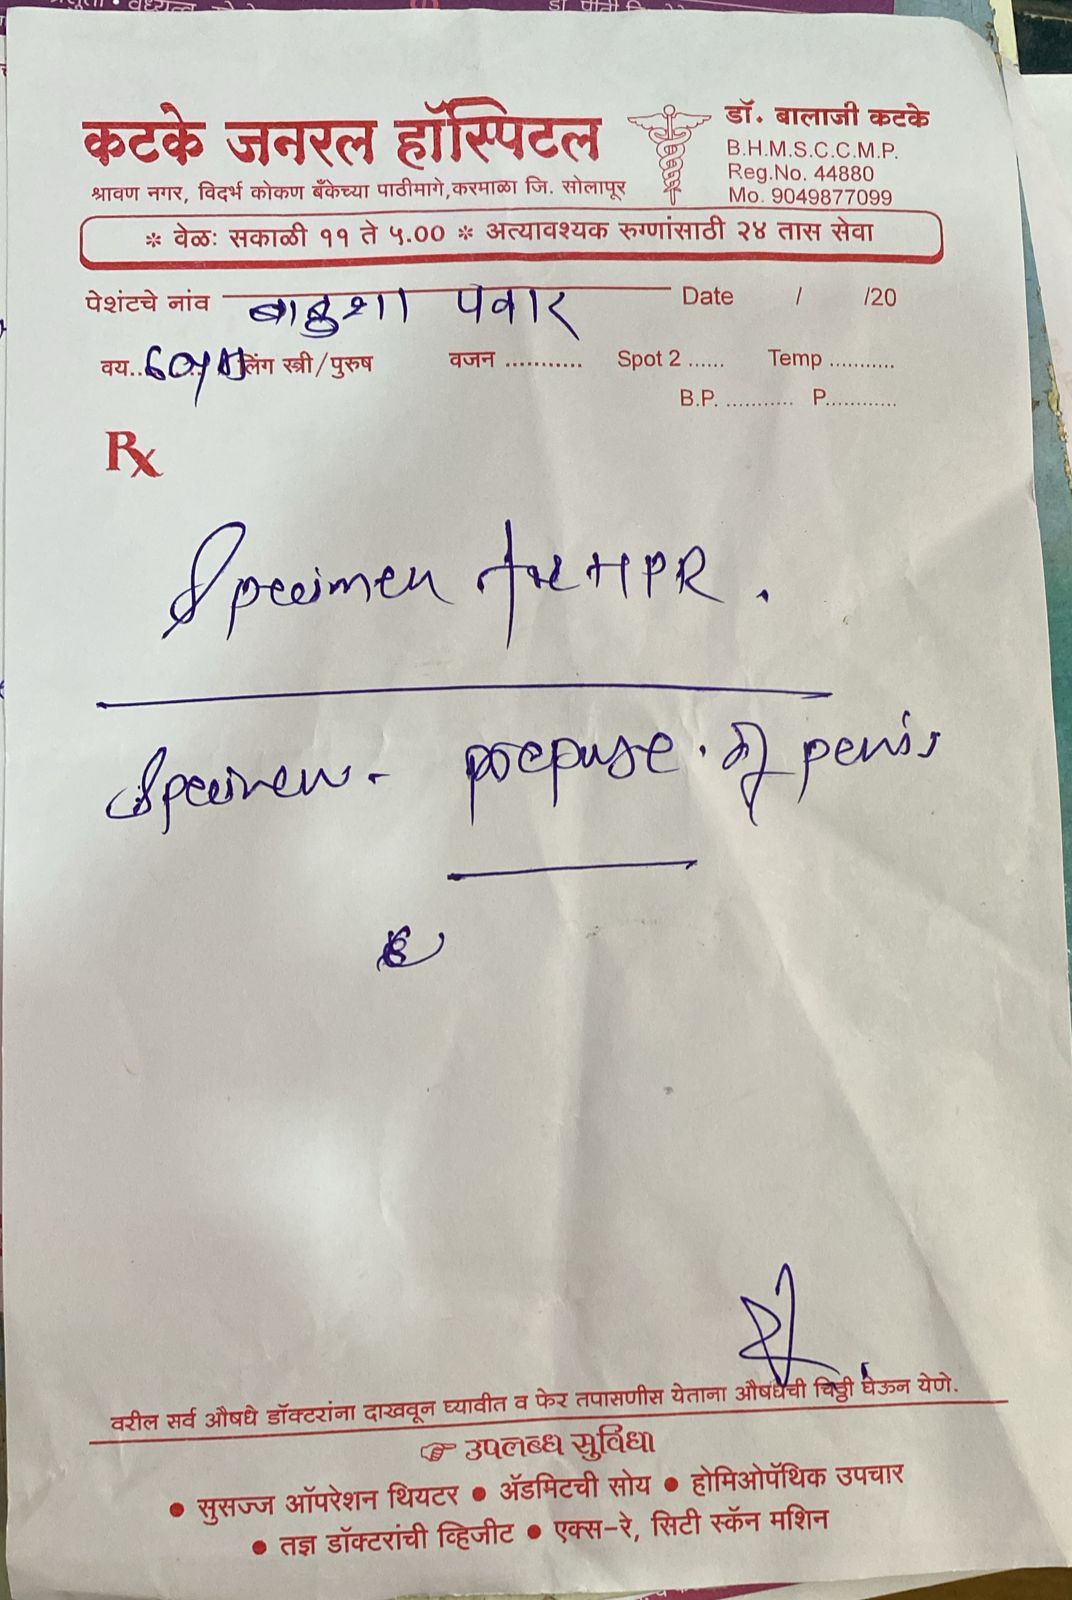 कटके जनरल हॉस्पिटल
श्रावण नगर, विदर्भ कोकण बँकेच्या पाठीमागे,करमाळा जि. सोलापूर
डॉ. बालाजी कटके
B.H.M.S.C.C.M.P.
Reg.No. 44880
Mo. 9049877099
* वेळः सकाळी ११ ते ५.०० * अत्यावश्यक रुग्णांसाठी २४ तास सेवा
पेशंटचे नांव बाबुशा पवार Date / /20
वय..60y लिंग स्त्री/पुरुष वजन ........... Spot 2 ...... Temp ...........
B.P. ........... P............
Rx
Specimen for HPR.
Specimen - prepuse. of penis
वरील सर्व औषधे डॉक्टरांना दाखवून घ्यावीत व फेर तपासणीस येताना औषधेची चिठ्ठी घेऊन येणे.
उपलब्ध सुविधा
• सुसज्ज ऑपरेशन थियटर • ॲडमिटची सोय • होमिओपॅथिक उपचार
• तज्ञ डॉक्टरांची व्हिजीट • एक्स-रे, सिटी स्कॅन मशिन